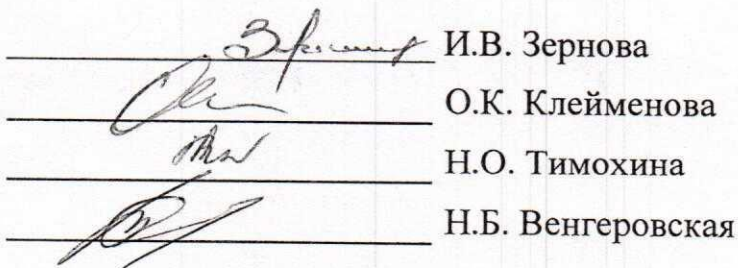 И.В. Зернова
О.К. Клейменова
Н.О. Тимохина
Н.Б. Венгеровская